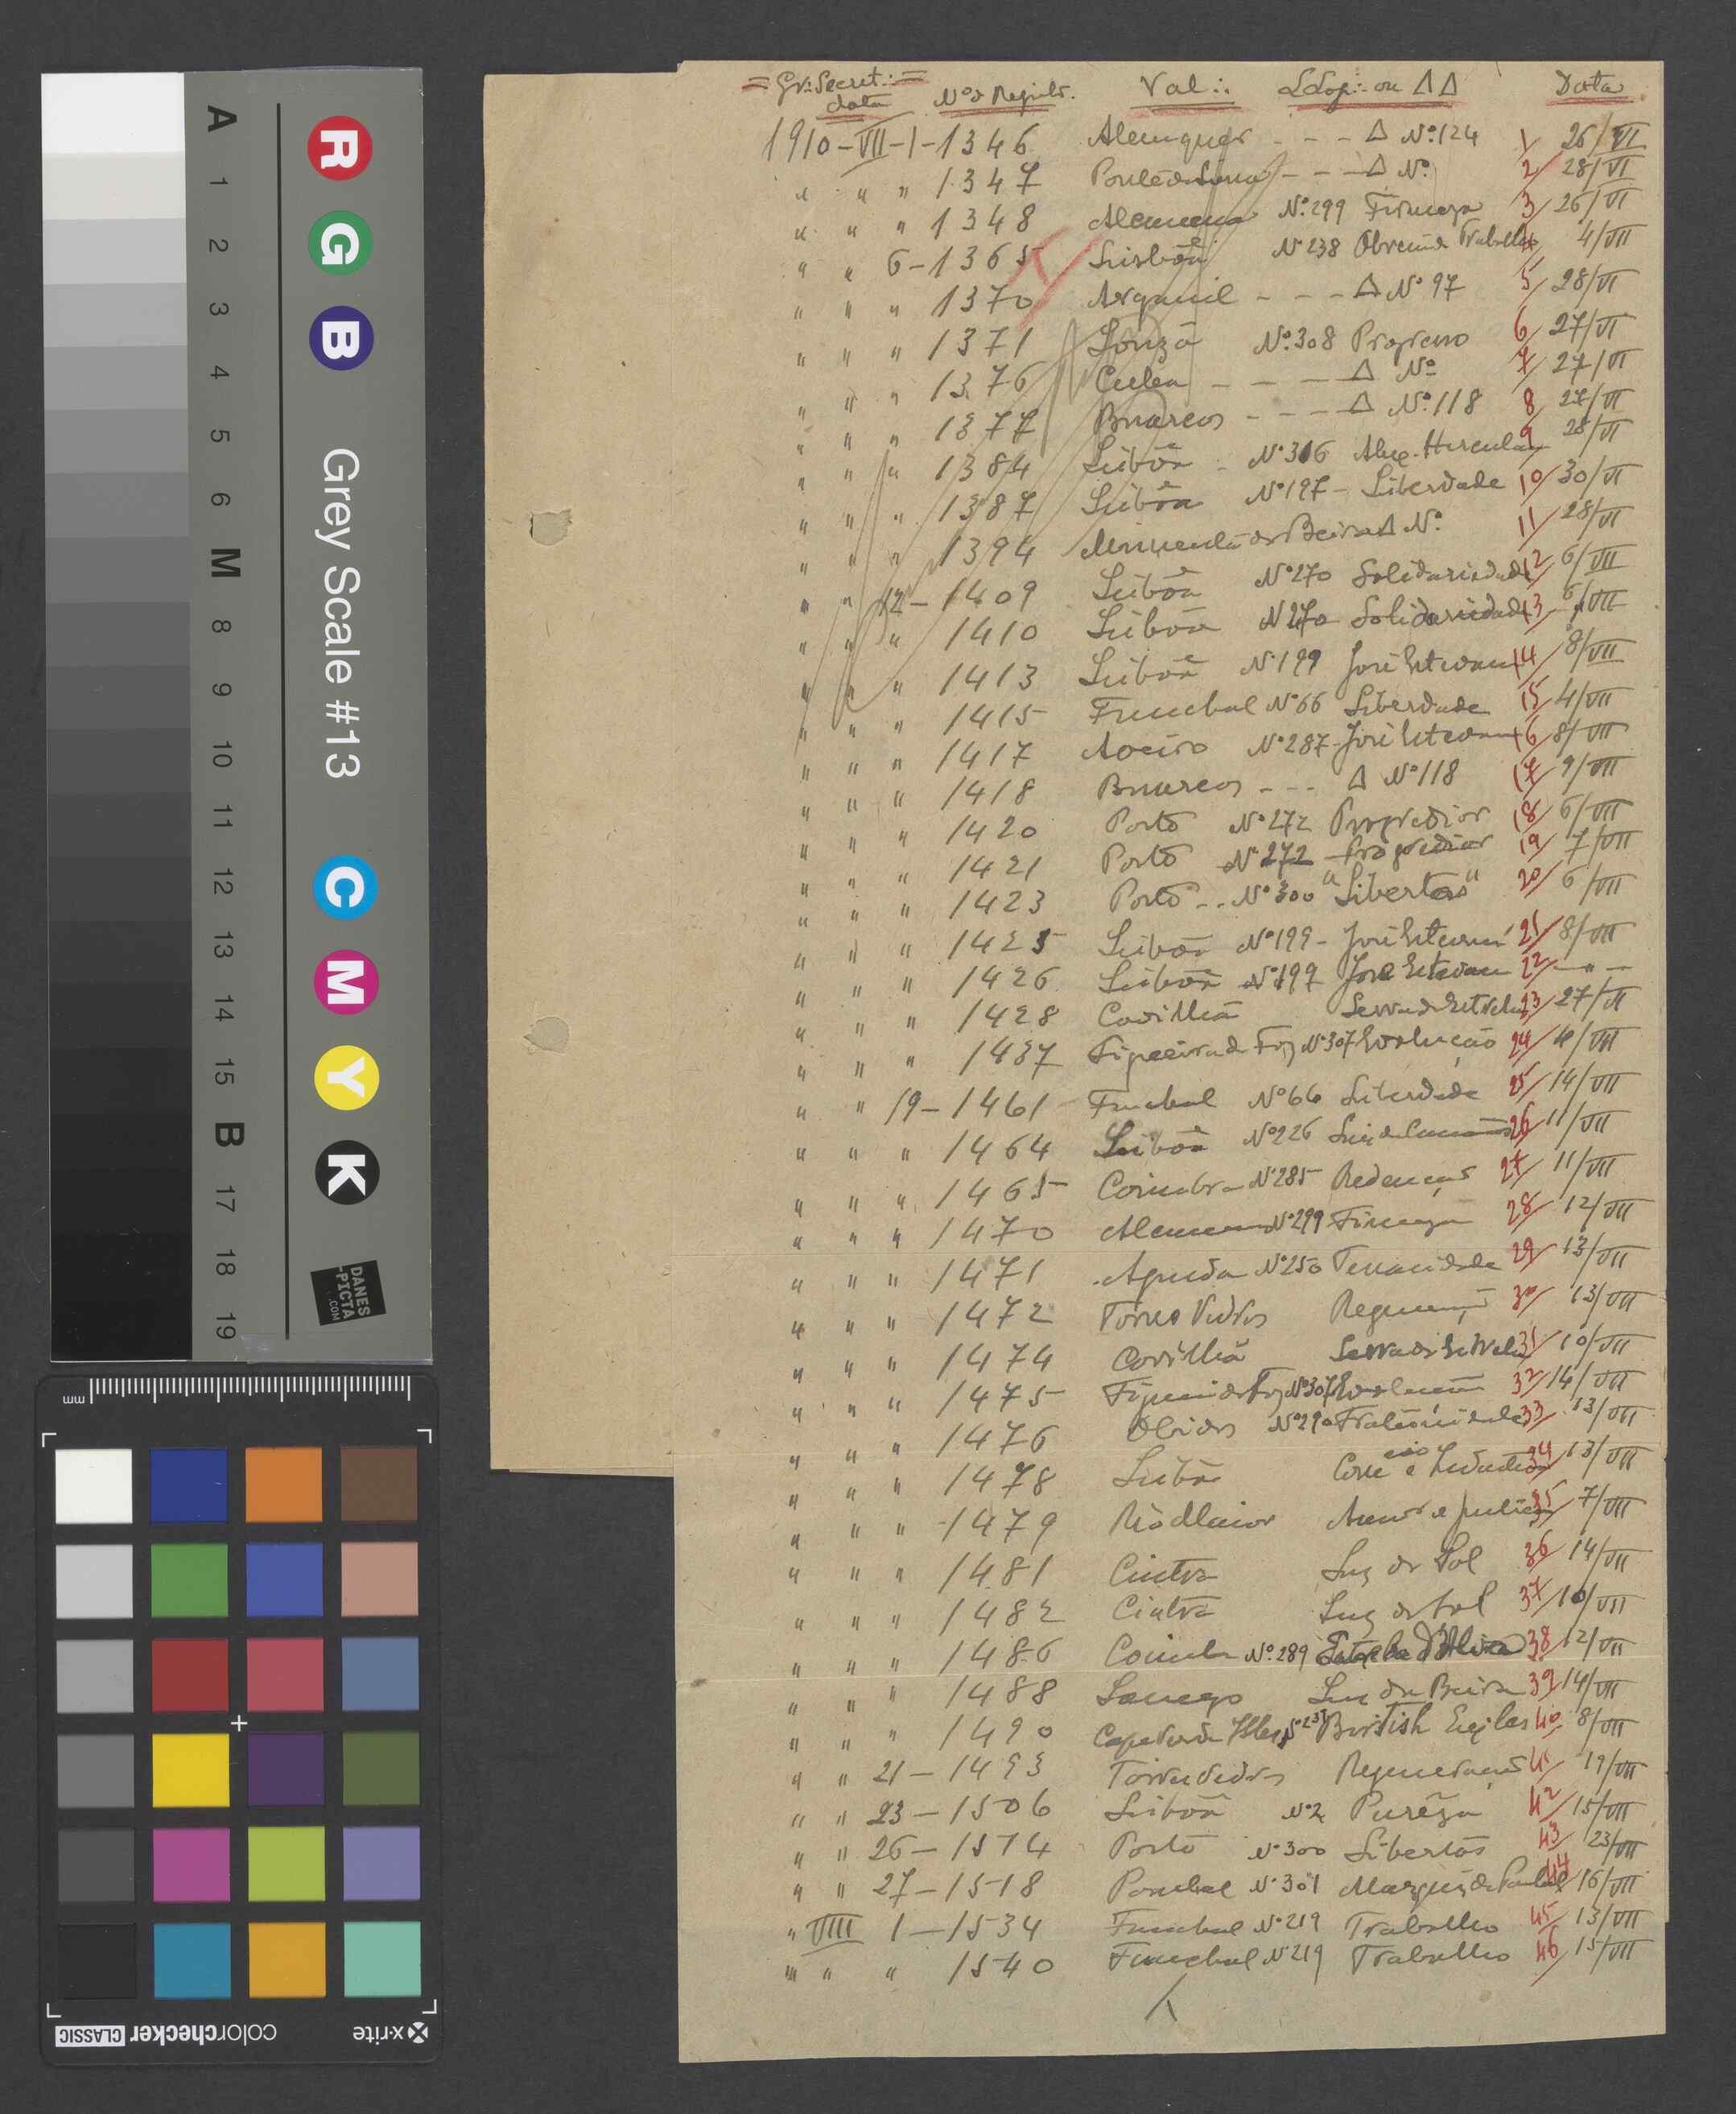 = Gr∴ Secret∴ =
data Nº d Registr. Val∴ LLoj∴ ou △△ Data
1910-VII-1-1346 Alemquer - - - △ Nº 124 1/ 26/VI
" " " 1347 - - - △ Nº 2/ 28/VI
" " " 1348 Nº 299 Firmeza 3/ 26/VI
" " 6-1365 Lisbôa Nº 238 Obreiros Trabalho 4/VII
" " " 1370 Arganil - - - △ Nº 97 5/ 28/VI
" " " 1371 Louzã Nº 308 Progresso 6/ 27/VI
" " " 1376 - - - △ Nº 7/ 27/VI
" " " 1377 Buarcos - - - △ Nº 118 8 27/VI
" " " 1384 Lisbôa - Nº 316 Alex. Herculano 9 28/VI
" " " 1387 Lisbôa Nº 197 - Liberdade 10/ 30/VI
" " " 1394 da Beira △ Nº 11/ 28/VI
" " 12-1409 Lisbôa Nº 270 Solidariedade 12 6/VII
" " " 1410 Lisbôa Nº 270 Solidariedade 13 6/VII
" " " 1413 Lisbôa Nº 199 José Estevam 14/ 8/VII
" " " 1415 Funchal Nº 66 Liberdade 15/ 4/VII
" " " 1417 Aveiro Nº 287 - José Estevam 16 8/VII
" " " 1418 Buarcos - - - △ Nº 118 17 9/VII
" " " 1420 Porto Nº 272 Progredior 18/ 6/VII
" " " 1421 Porto Nº 272 Progredior 19/ 7/VII
" " " 1423 Porto - - Nº 300 "Libertas" 20/ 6/VII
" " " 1425 Lisbôa Nº 199 - José Estevam 21/ 8/VII
" " " 1426 Lisbôa Nº 199 José Estevam 22/ - " -
" " " 1428 Covilhã Serra da Estrela 23/ 27/VI
" " " 1437 Figueira da Foz Nº 307 Evolução 24/ /VII
" " 19-1461 Funchal Nº 66 Liberdade 25/ 14/VII
" " " 1464 Lisbôa Nº 226 Luiz de Camões 26/ 11/VII
" " " 1465 Coimbra Nº 285 Redenção 27/ 11/VII
" " " 1470 Nº 299 Firmeza 28/ 12/VII
" " " 1471 Agueda Nº 250 Tenacidade 29/ 13/VII
" " " 1472 Torres Vedras Regeneração 30/ 13/VII
" " " 1474 Covilhã Serra da Estrela 31/ 10/VII
" " " 1475 Figueira da Foz Nº 307 Evolução 32/ 14/VII
" " " 1476 Obidos Nº 290 Fraternidade 33 13/VII
" " " 1478 Lisbôa Comercio e Industria 34 13/VII
" " " 1479 Rio Maior Amor e Justiça 35/ 7/VII
" " " 1481 Cintra Luz do Sol 36/ 14/VII
" " " 1482 Cintra Luz do Sol 37/ 10/VII
" " " 1486 Coimbra Nº 289 Estrela d'Alva 38 12/VII
" " " 1488 Lamego Luz da Beira 39 14/VII
" " " 1490 Cape Verde Isles Nº 237 British Exiles 40 8/VII
" " 21-1493 Torres Vedras Regeneração 41/ 19/VII
" " 23-1506 Lisbôa Nº 2 Purêza 42/ 15/VII
" " 26-1514 Porto Nº 300 Libertas 43/ 23/VII
" " 27-1518 Pombal Nº 301 Marquez de Pombal 44 16/VII
" VIII 1-1534 Funchal Nº 219 Trabalho 45/ 13/VII
" " " 1540 Funchal Nº 219 Trabalho 46/ 15/VII
R G B Grey Scale #13 C M Y K
A 1 2 3 4 5 6 M 8 9 10 11 12 13 14 15 B 17 18 19
DANES-PICTA.COM
mm
x-rite colorchecker CLASSIC